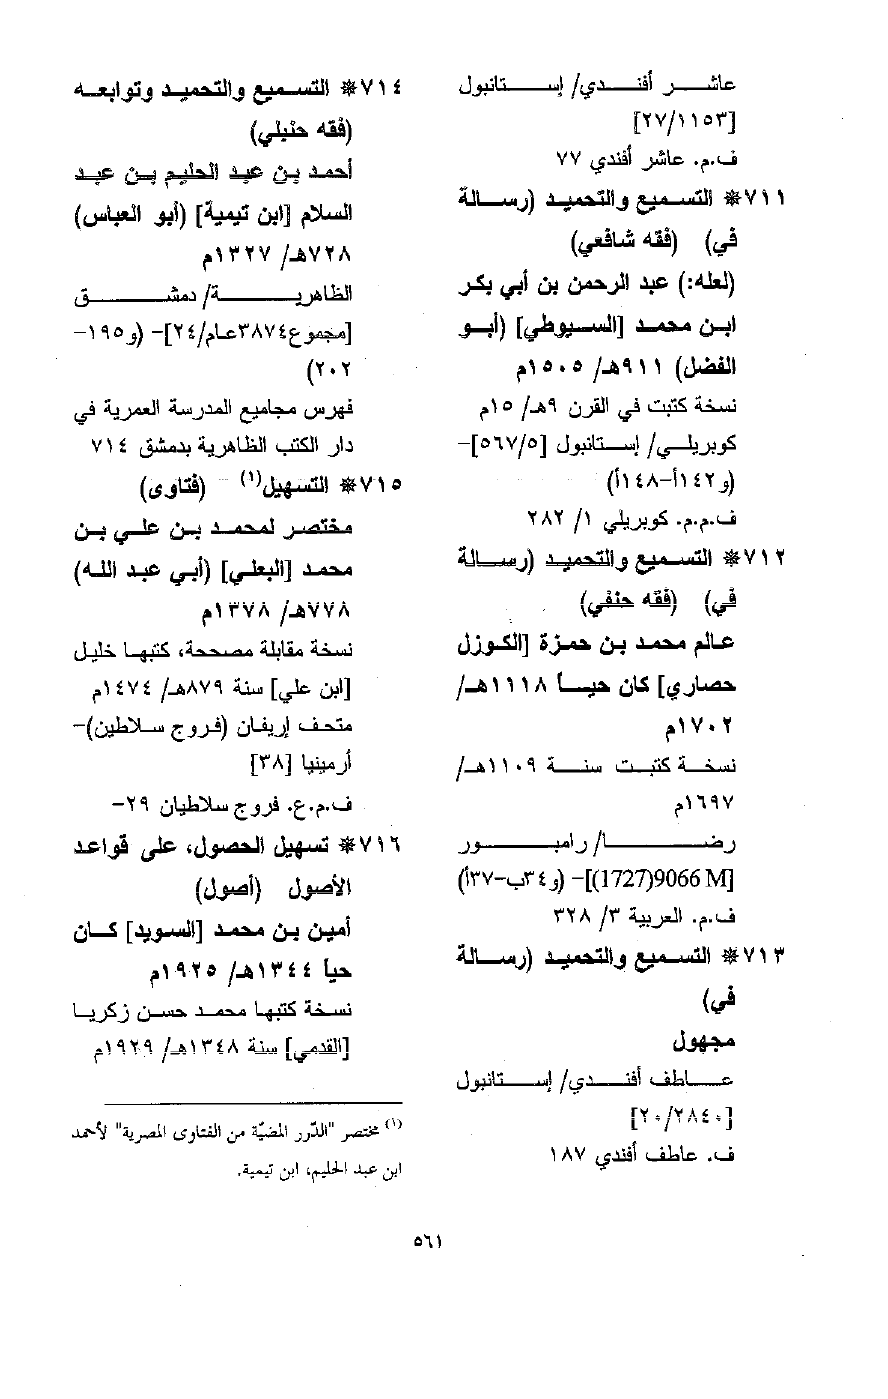 عاشر أفندي/ إستانبول
[٢٧/١١٥٣]
ف.م. عاشر أفندي ٧٧
٧١١* التسميع والتحميد (رسالة
في) (فقه شافعي)
(لعله:) عبد الرحمن بن أبي بكر
ابن محمد [السيوطي] (أبو
الفضل) ٩١١هـ/ ١٥٠٥م
نسخة كتبت في القرن ٩هـ/ ١٥م
كوبريلي/ إستانبول [٥٦٧/٥]-
(و١٤٢أ-١٤٨أ)
ف.م.م. كوبريلي ١/ ٢٨٢
٧١٢* التسميع والتحميد (رسالة
في) (فقه حنفي)
عالم محمد بن حمزة [الكوزل
حصاري] كان حياً ١١١٨هـ/
١٧٠٢م
نسخة كتبت سنة ١١٠٩هـ/
١٦٩٧م
رضا/ رامبور
[(1727)9066 M]- (و٣٤ب-٣٧أ)
ف.م. العربية ٣/ ٣٢٨
٧١٣* التسميع والتحميد (رسالة
في)
مجهول
عاطف أفندي/ إستانبول
[٢٠/٢٨٤٠]
ف. عاطف أفندي ١٨٧
٧١٤* التسميع والتحميد وتوابعه
(فقه حنبلي)
أحمد بن عبد الحليم بن عبد
السلام [ابن تيمية] (أبو العباس)
٧٢٨هـ/ ١٣٢٧م
الظاهرية/ دمشق
[مجموع٣٨٧٤عام/٢٤]- (و١٩٥-
٢٠٢)
فهرس مجاميع المدرسة العمرية في
دار الكتب الظاهرية بدمشق ٧١٤
٧١٥* التسهيل(١) (فتاوى)
مختصر لمحمد بن علي بن
محمد [البعلي] (أبي عبد الله)
٧٧٨هـ/ ١٣٧٨م
نسخة مقابلة مصححة، كتبها خليل
[ابن علي] سنة ٨٧٩هـ/ ١٤٧٤م
متحف إريفان (فروج سلاطين)-
أرمينيا [٣٨]
ف.م.ع. فروج سلاطيان ٢٩-
٧١٦* تسهيل الحصول، على قواعد
الأصول (أصول)
أمين بن محمد [السويد] كان
حيا ١٣٤٤هـ/ ١٩٢٥م
نسخة كتبها محمد حسن زكريا
[القدمي] سنة ١٣٤٨هـ/ ١٩٢٩م
(١) مختصر "الدّرر المضيّة من الفتاوى المصرية" لأحمد
ابن عبد الحليم، ابن تيمية.
٥٦١